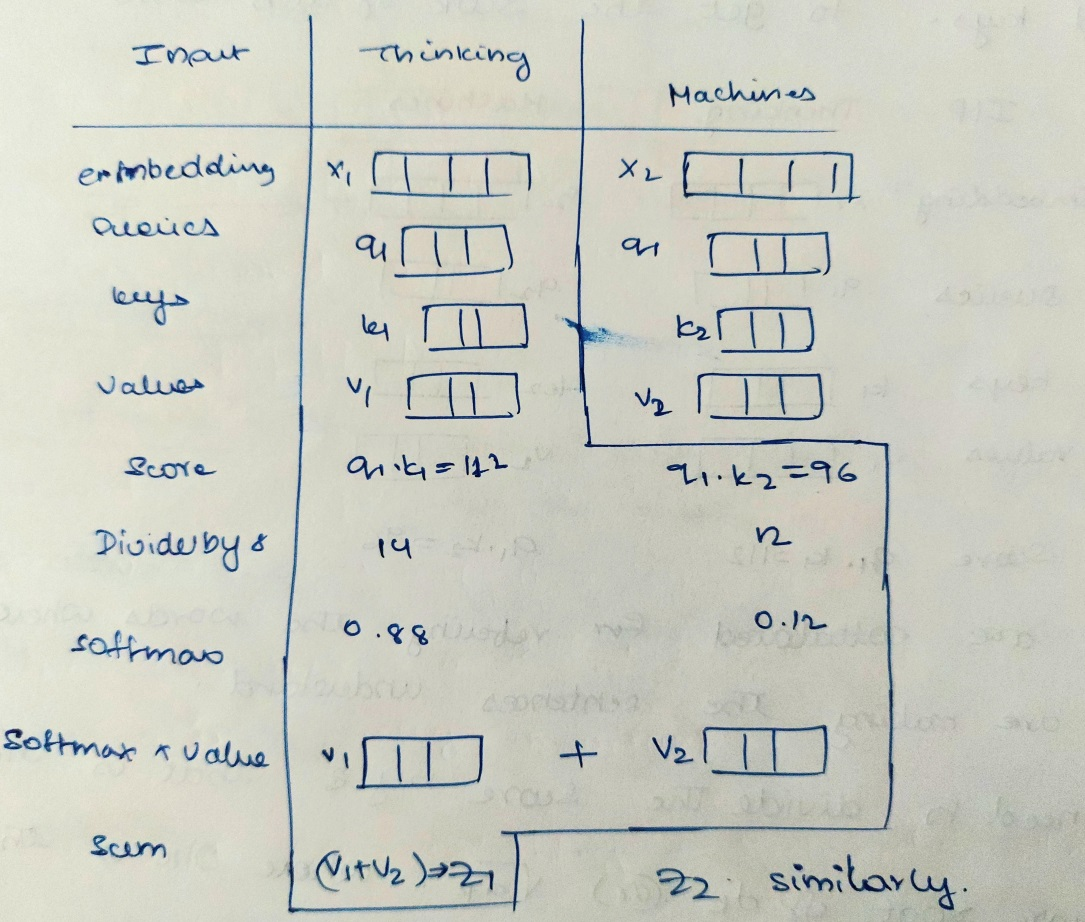 Input Thinking Machines
embedding x1 x2
Queries q1 q1
keys k1 k2
Values V1 V2
Score q1.k1 = 112 q1.k2 = 96
Divide by 8 14 12
softmax 0.88 0.12
Softmax x Value V1 + V2
Sum (V1+V2)→Z1 Z2 similarly.